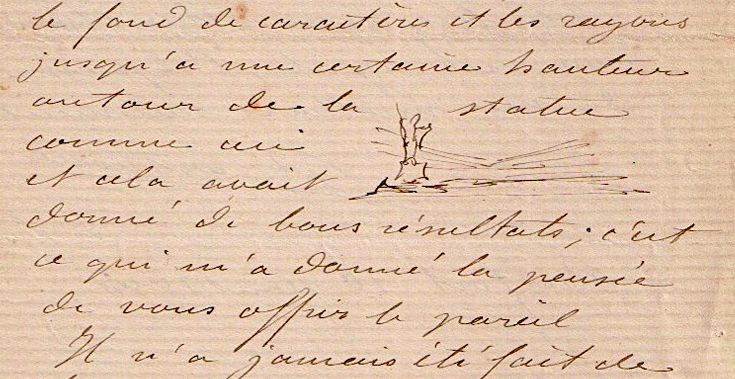 le fond de caractères et les rayons
jusqu'a une certaine hauteur
autour de la statue
comme ici
et cela avait
donné de bons résultats; c'est
ce qui m'a donné la pensée
de vous offrir le pareil
Il n'a jamais été fait de